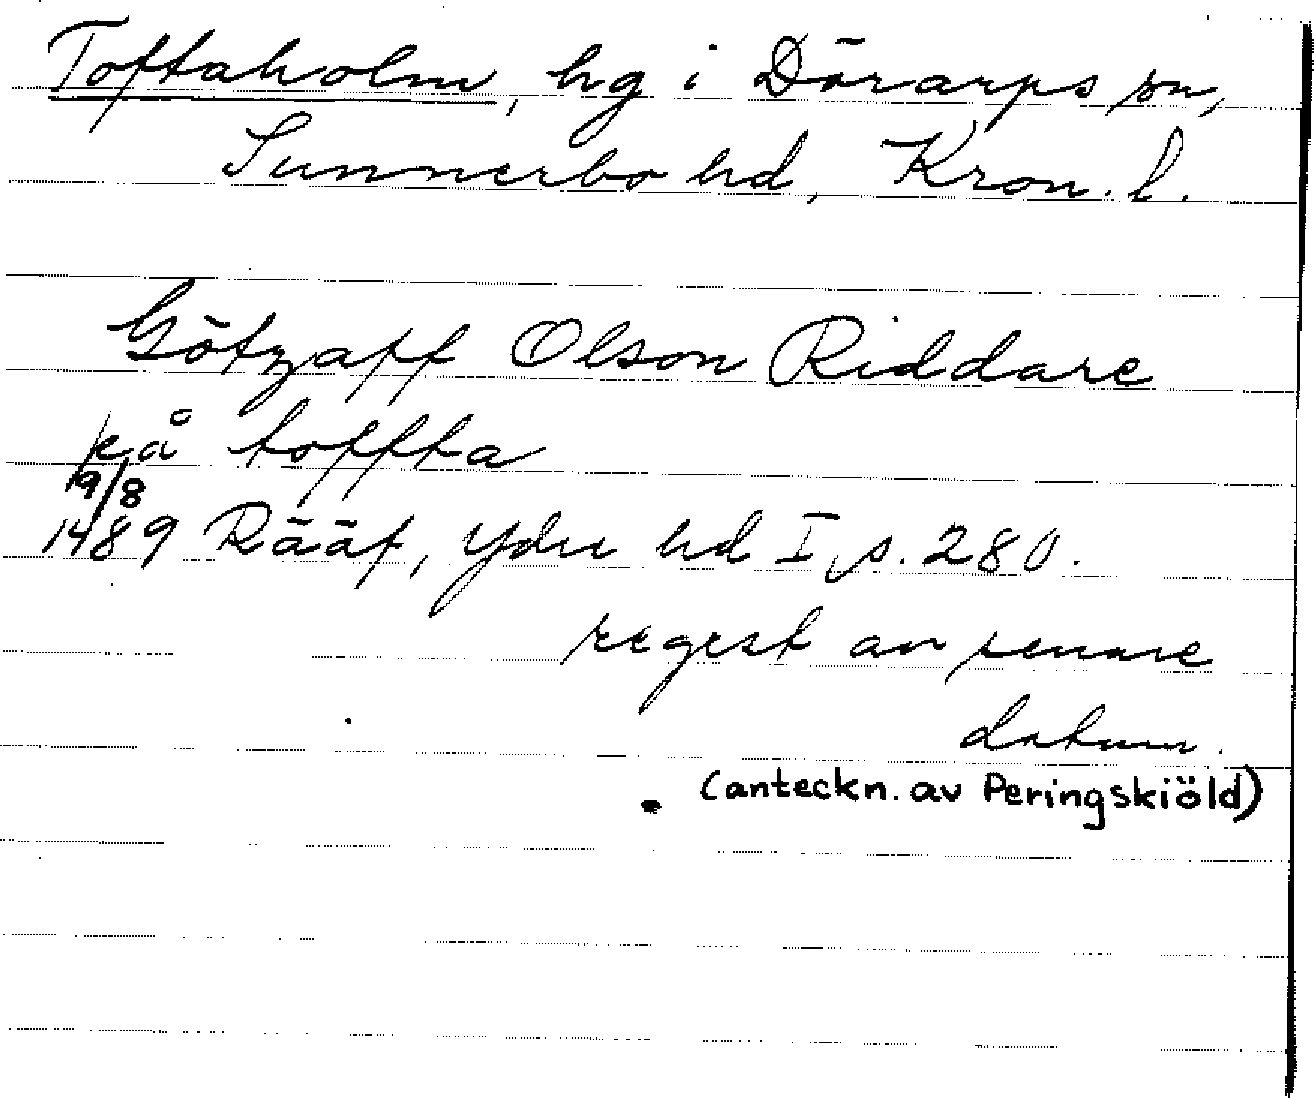 Toftaholm, hg i Dörarps sn,
Sunnerbo hd, Kron. l.
Götzaff Olson Riddare
på toffta
19/8
1489 Rääf, Ydre hd I, s. 280.
regest av senare
datum.
(anteckn. av Peringskiöld)